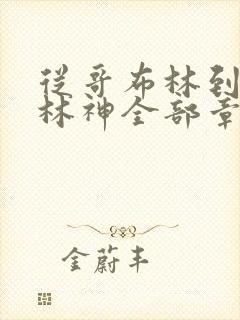 从哥布林到
林神全部章
金蔚丰